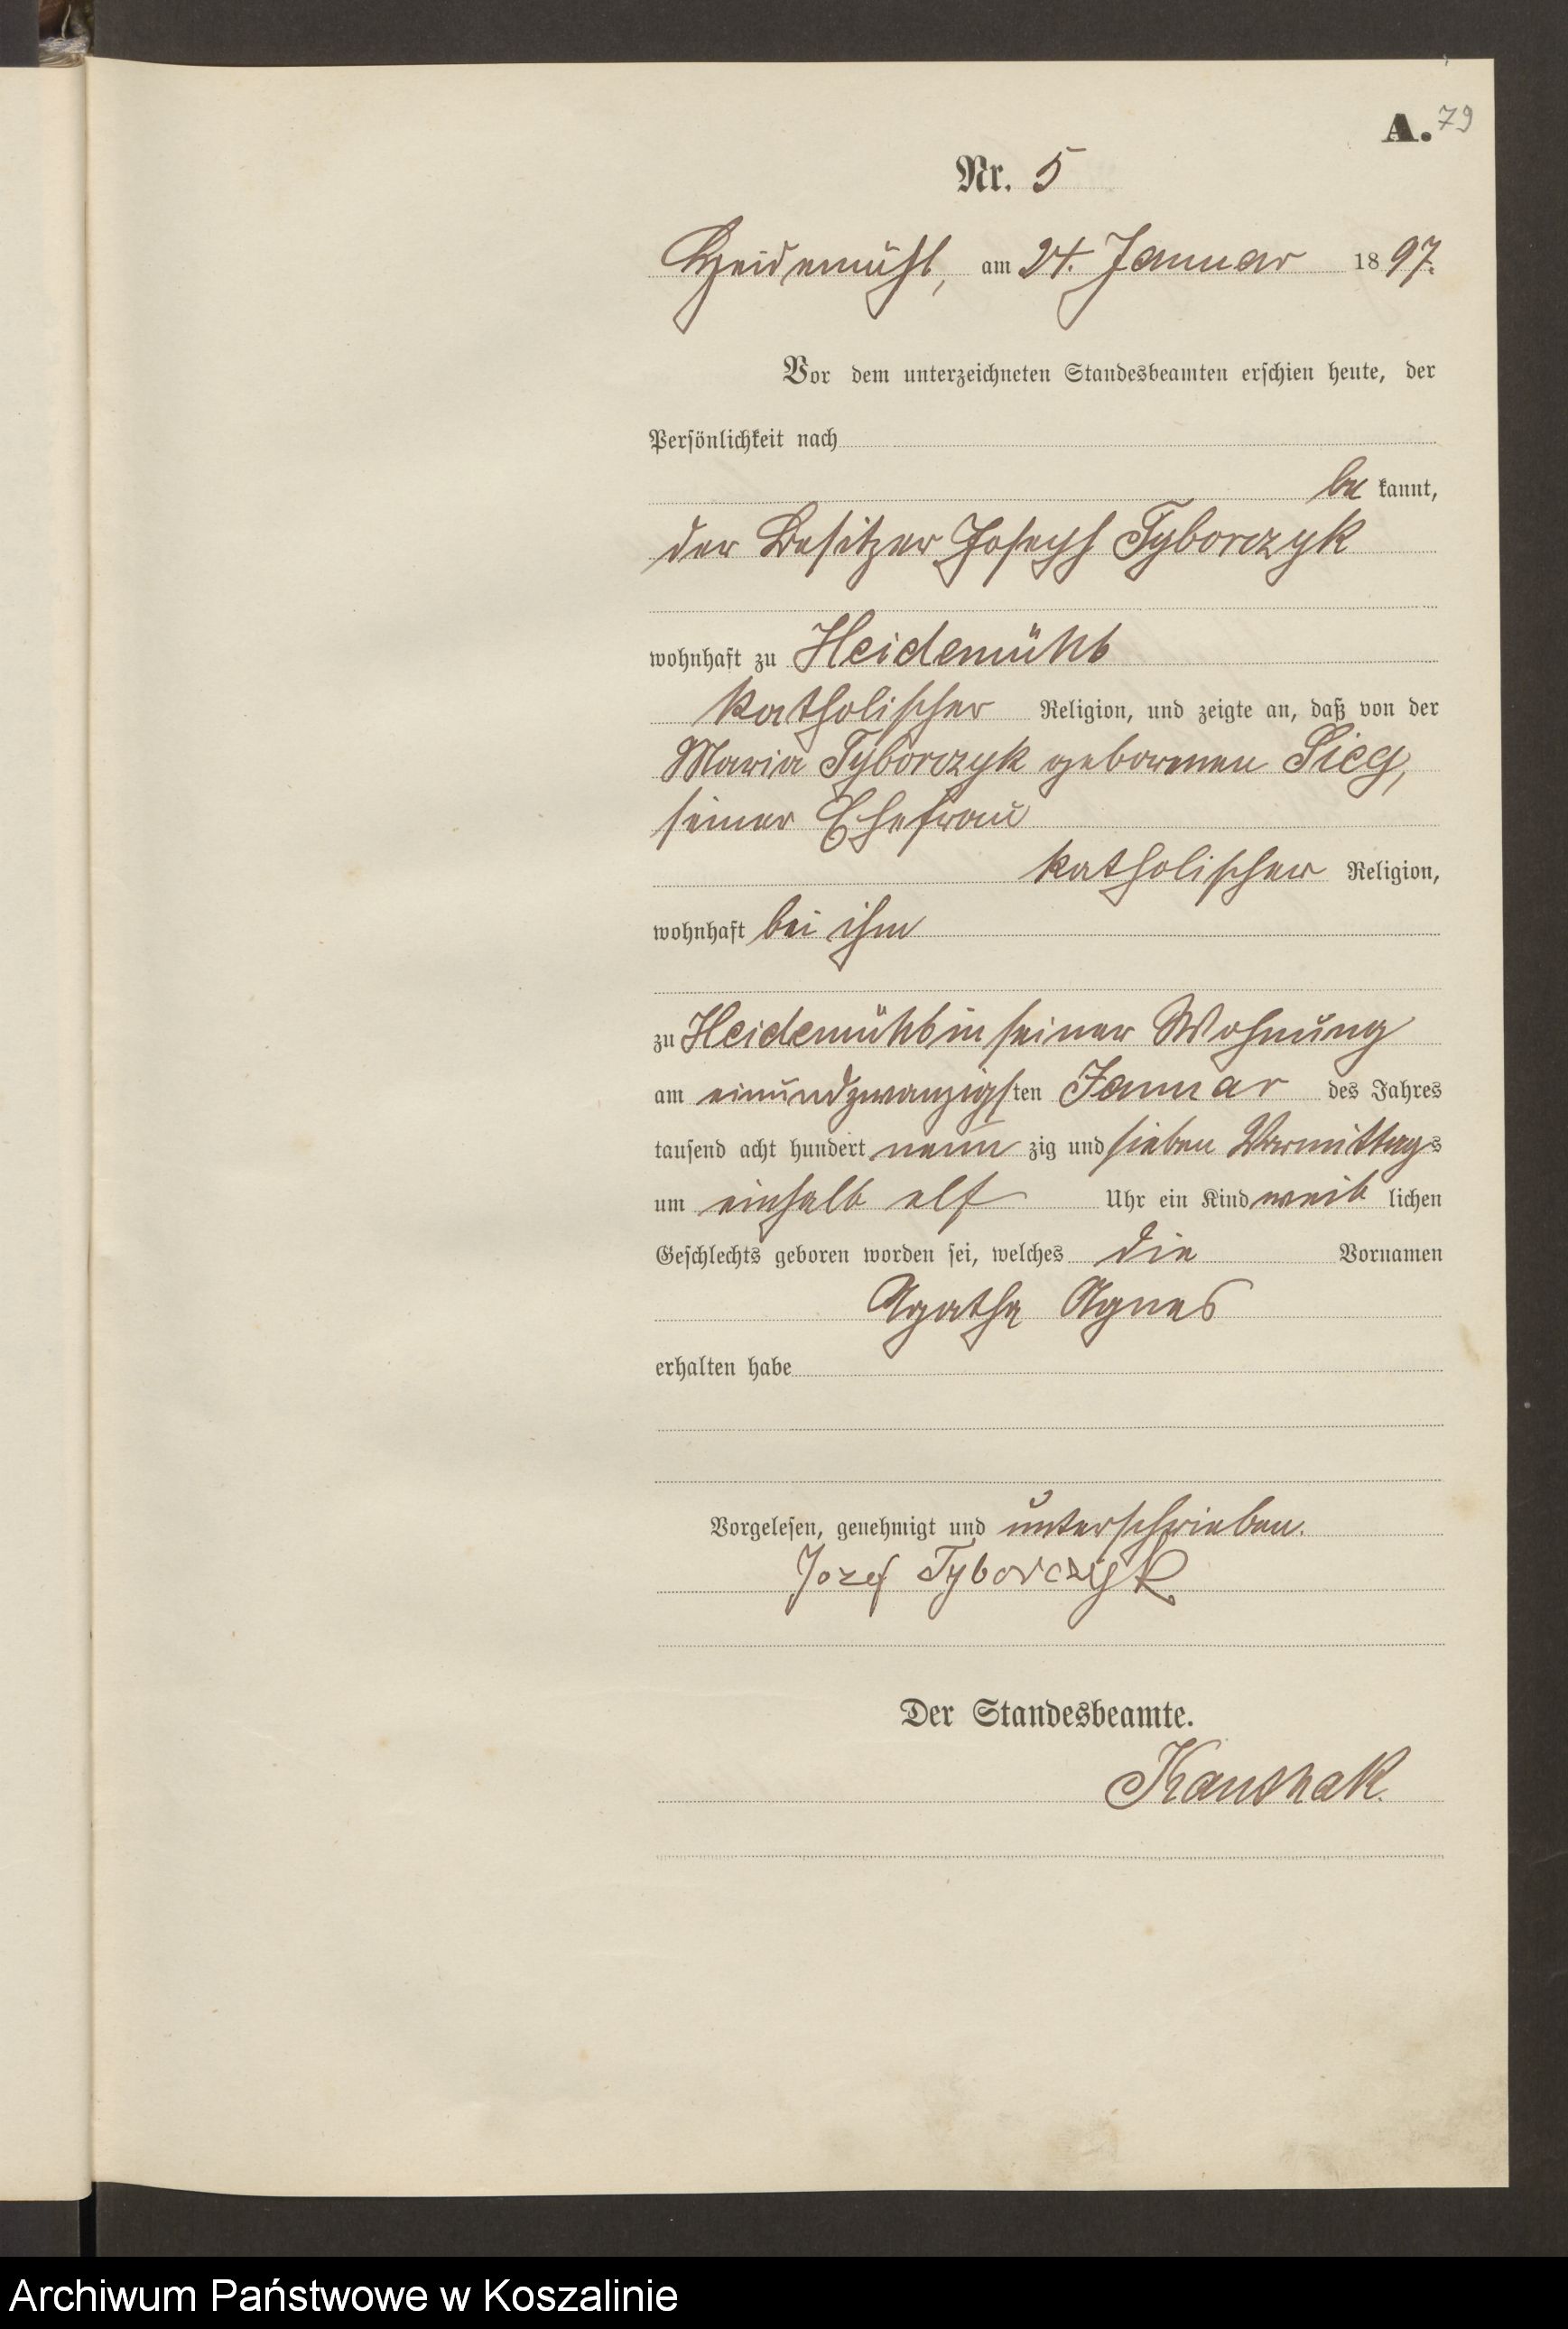 A. 79
Nr. 5
Heidemühl, am 24. Januar 1897.
Vor dem unterzeichneten Standesbeamten erschien heute, der
Persönlichkeit nach
be kannt,
der Besitzer Joseph Tyborczyk
wohnhaft zu Heidemühl
katholischer Religion, und zeigte an, daß von der
Maria Tyborczyk geborenen Sieg,
seiner Ehefrau
katholischer Religion,
wohnhaft bei ihm
zu Heidemühl in seiner Wohnung
am einundzwanzigsten Januar des Jahres
tausend acht hundert neun zig und sieben Vormittags
um einhalb elf Uhr ein Kind weib lichen
Geschlechts geboren worden sei, welches die Vornamen
Agatha Agnes
erhalten habe
Vorgelesen, genehmigt und unterschrieben.
Jozef Tyborczyk
Der Standesbeamte.
Archiwum Państwowe w Koszalinie